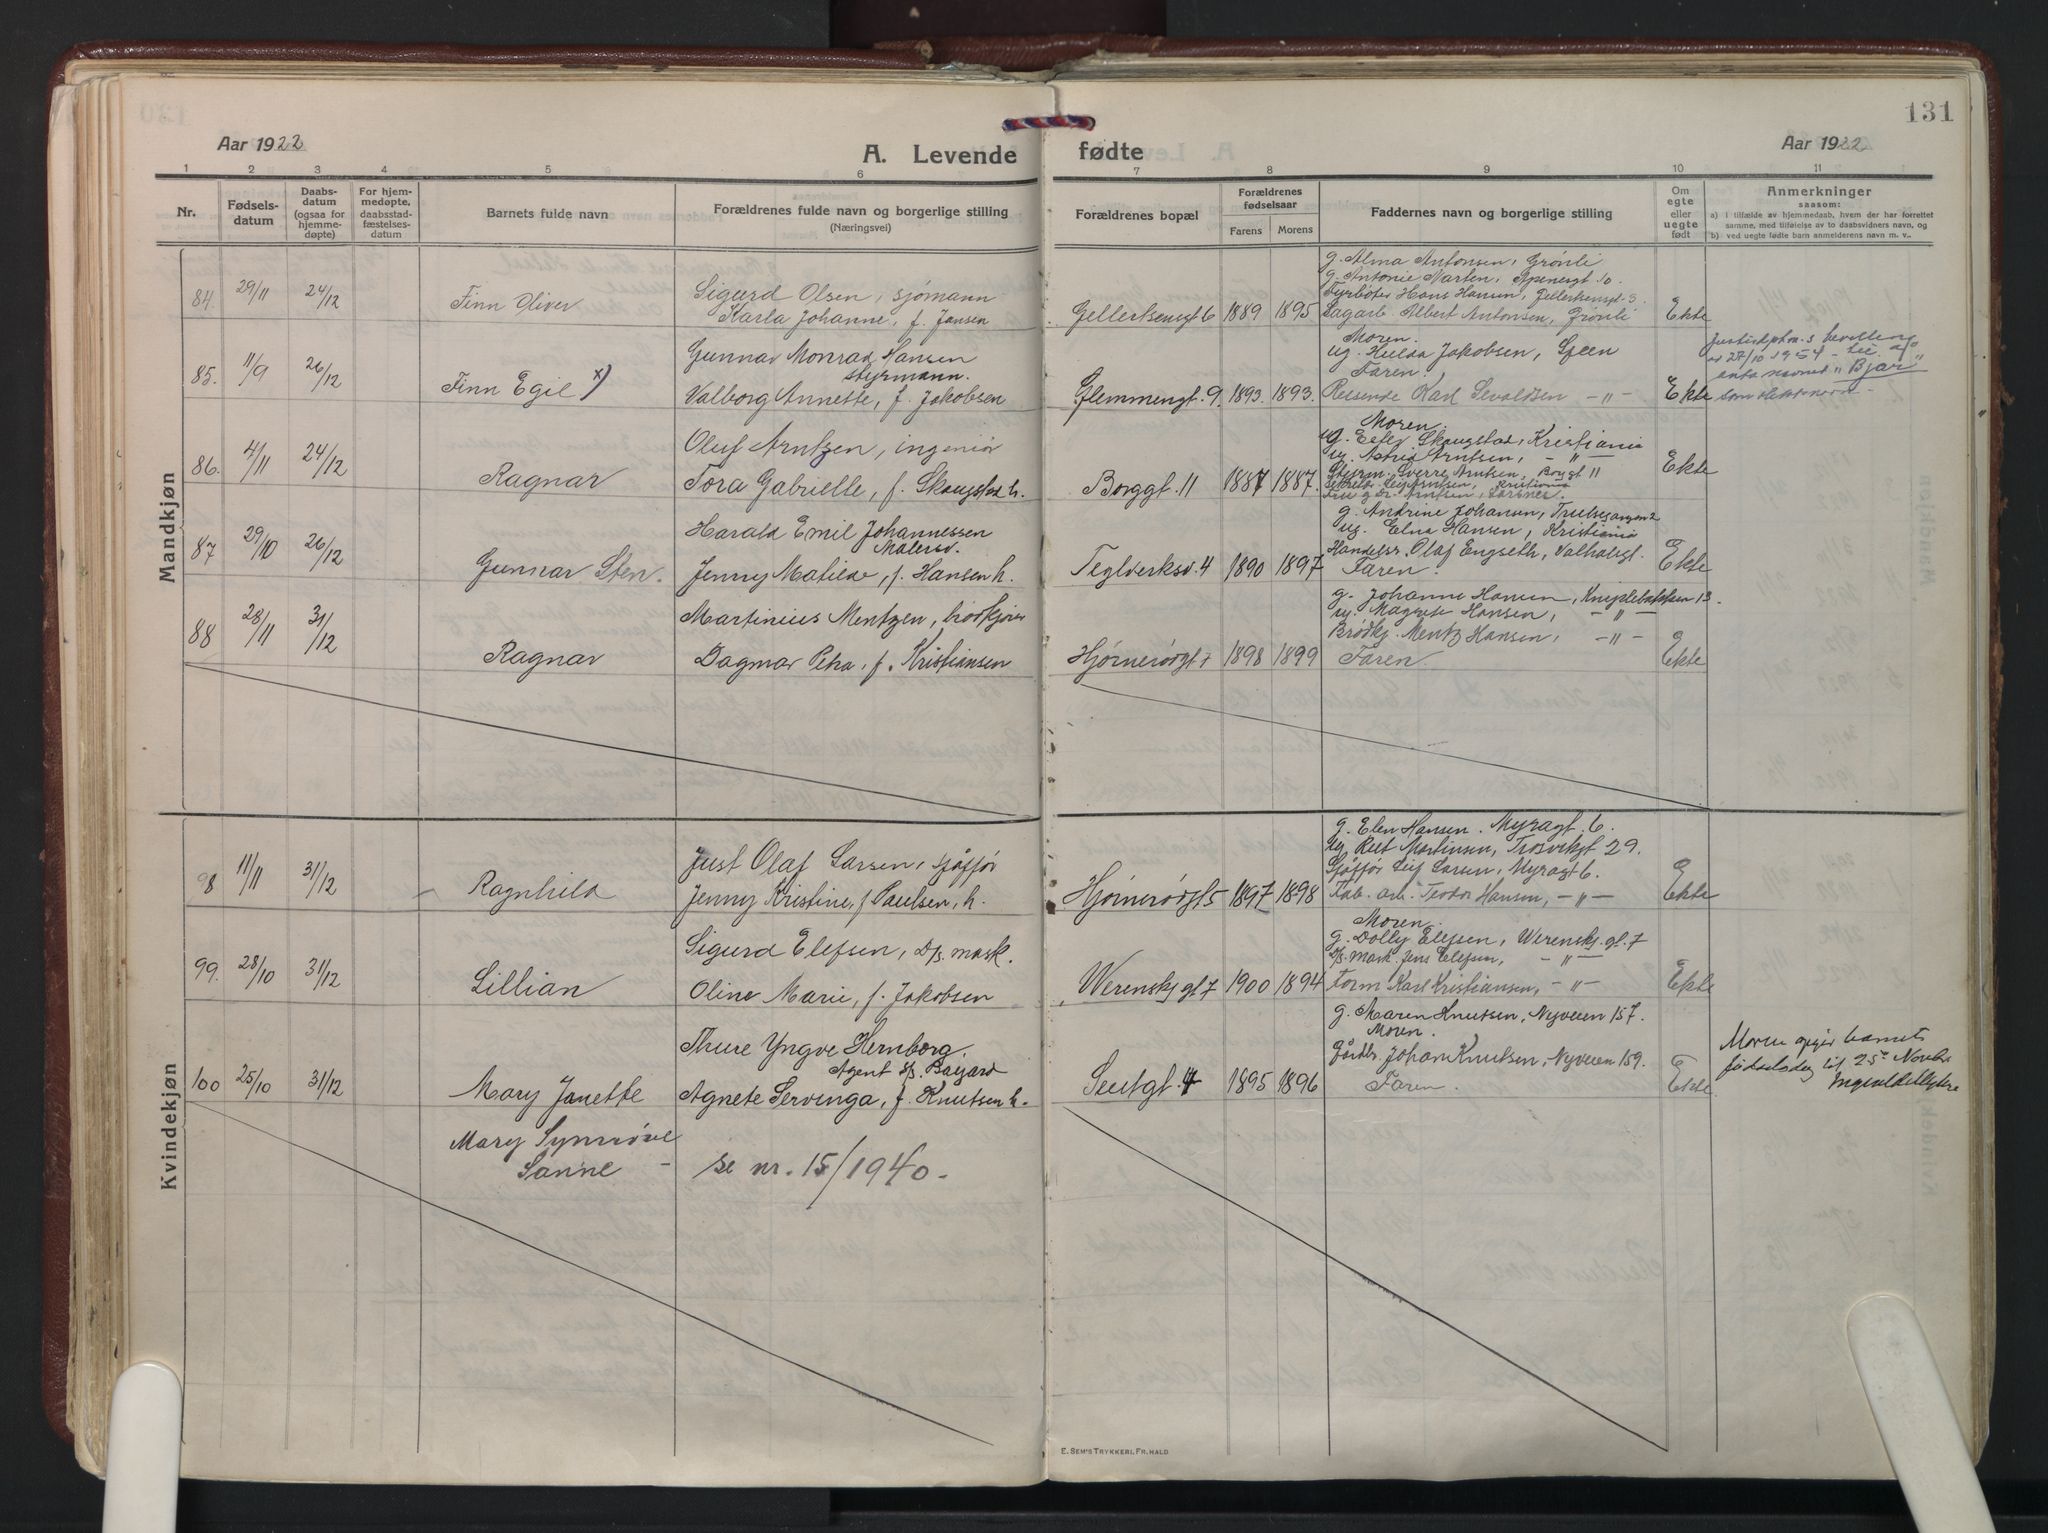 131
Aar 1922
A. Levende
fødte
Aar 1922
1 2 3 4 5 6 7 8 9 10 11
Nr.
Fødsels-
datum
Daabs-
datum
(ogsaa for
hjemme-
døpte)
For hjem-
medøpte,
daabsstad-
fæstelses-
datum
Barnets fulde navn
Forældrenes fulde navn og borgerlige stilling
(Næringsvei)
Forældrenes bopæl
Forældrenes
fødselsaar
Farens Morens
Faddernes navn og borgerlige stilling
Om
egte
eller
uegte
født
Anmerkninger
saasom:
a) I tilfælde av hjemmedaab, hvem der har forrettet
samme, med tilføielse av to daabsvidners navn, og
b) ved uegte fødte barn anmelderens navn m. v..
Mandkjøn
84. 29/11 24/12 Finn Oliver
Sigurd Olsen, sjømann
Karla Johanne, f. Jansen
Gellertsensgt 6 1889 1895
g. Alma Antonsen, Grønli
g. Antonie Narten, Apenesgt 10
Fyrbøter Hans Hansen, Gellertsensgt. 3
Sagarb. Albert Antonsen, Grønli
Ekte
85. 11/9 26/12 Finn Egil x)
Gunnar Monrad Hansen
styrmann.
Valborg Annette, f. Jakobsen
Glemmengt. 9. 1893. 1893.
Moren.
ug. Hulda Jakobsen, Speen
Faren.
Reisende Karl Sevaldsen -"-
Ekte
av 27/10 1954
"Bjar"
som slektsnavn -
86. 4/11 24/12 Ragnar
Oluf Arntzen, ingeniør
Tora Gabrielle, f. Skaugstad h.
Borggt. 11 1887 1887.
Moren.
ug. Skaugstad, Kristiania
ug. Astrid Arntsen, - " -
Styrm. Sverre Arntsen, Borggt 11
Leif Arntsen, Kristiania
Fru g Dr. Arntsen,
Ekte
87 29/10 26/12 Gunnar Sten.
Harald Emil Johannessen
Malersv.
Jenny Matilde, f. Hansen h.
Teglverksv. 4 1890 1897
g. Andrine Johansen, Trulsegangen 2
ug. Elna Hansen, Kristiania
Handelsr. Olaf Engseth, Valhalsgt.
Faren.
Ekte
88 28/11 31/12 Ragnar
Martinius Mentzen, brødkjører
Dagmar Petra, f. Kristiansen
Hjørnerødgt 7 1898 1899
g. Johanne Hansen, Kniplebakken 13.
ug. Magrete Hansen, - " -
Brødkj. Mentz Hansen, - " -
Faren
Ekte
Kvindekjøn
98 11/11 31/12 Ragnhild
Just Olaf Larsen, sjåfør
Jenny Kristine, f. Paulsen, h.
Hjørnerødgt 5 1897 1898
g. Elen Hansen. Myragt. 6.
ug. Rut Martinsen, Trosvikgt 29.
Sjåfør Leif Larsen, Myragt 6.
Fab. arb. Teodor Hansen, - " -
Ekte
99. 28/10 31/12 Lillian
Sigurd Elefsen, D/s. mask.
Oline Marie, f. Jakobsen
Werensk. gt. 7 1900 1894
Moren.
g. Dolly Elefsen, Werensk. gt. 7
D/s. mask. Jens Elefsen, - " -
Form Karl Kristiansen, - " -
Ekte
100 25/10 31/12 Mary Janette
Thure Yngve Hernborg,
Agent
Agnete Servinga, f. Knutsen h.
1895 1896
g. Maren Knutsen, Nyveien 157.
Moren.
Gårdbr. Johan Knutsen, Nyveien 159.
Faren.
Ekte
Moren opgir barnets
fødselsdag til 25de Novbr
Mary Synnøve
Sanne -
se nr. 15/1940 -
E. SEM'S TRYKKERI, FR. HALD